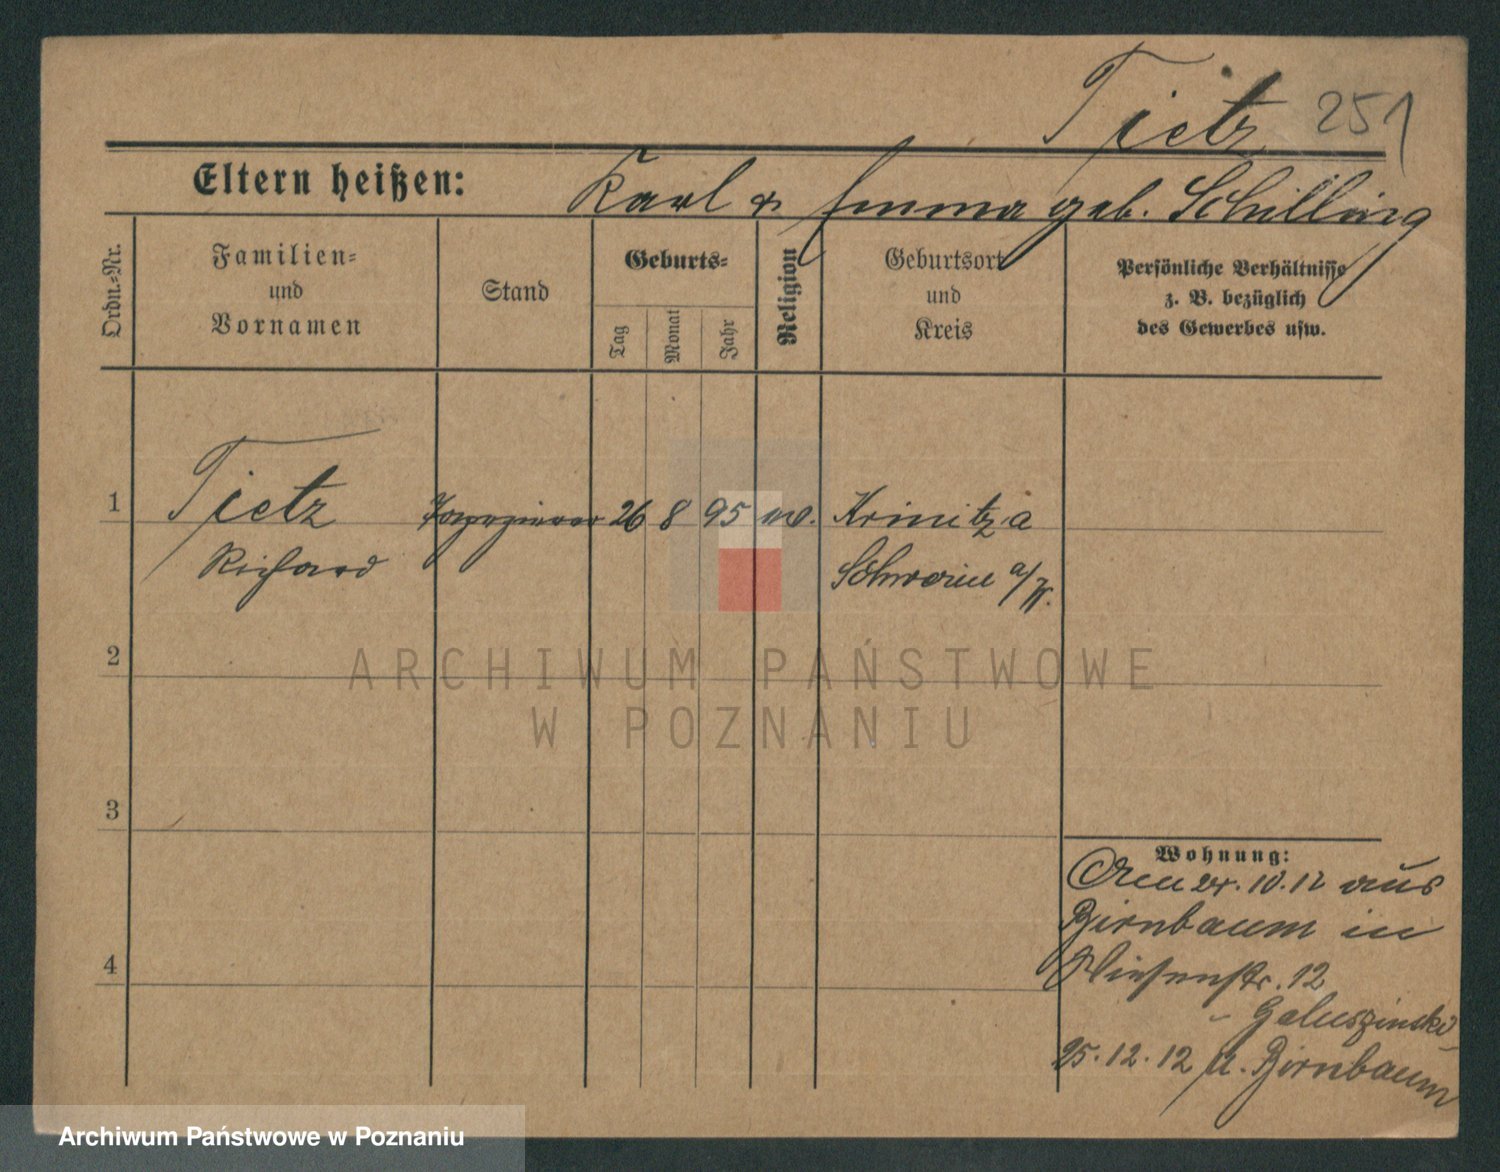 Tietz 251
Eltern heißen: Karl & Emma geb. Schilling
Ordn.=Nr.
Familien=
und
Vornamen
Stand
Geburts=
Tag
Monat
Jahr
Religion
Geburtsort
und
Kreis
Persönliche Verhältnisse
z. B. bezüglich
des Gewerbes usw.
1 Tietz 26 8 95 Krinitza
Richard Schwerin a/W.
2
3
4
Wohnung:
10.12 aus
Birnbaum in
Wiesenstr. 12
Galuszinski
25.12.12 n. Birnbaum
ARCHIWUM PAŃSTWOWE
W POZNANIU
Archiwum Państwowe w Poznaniu